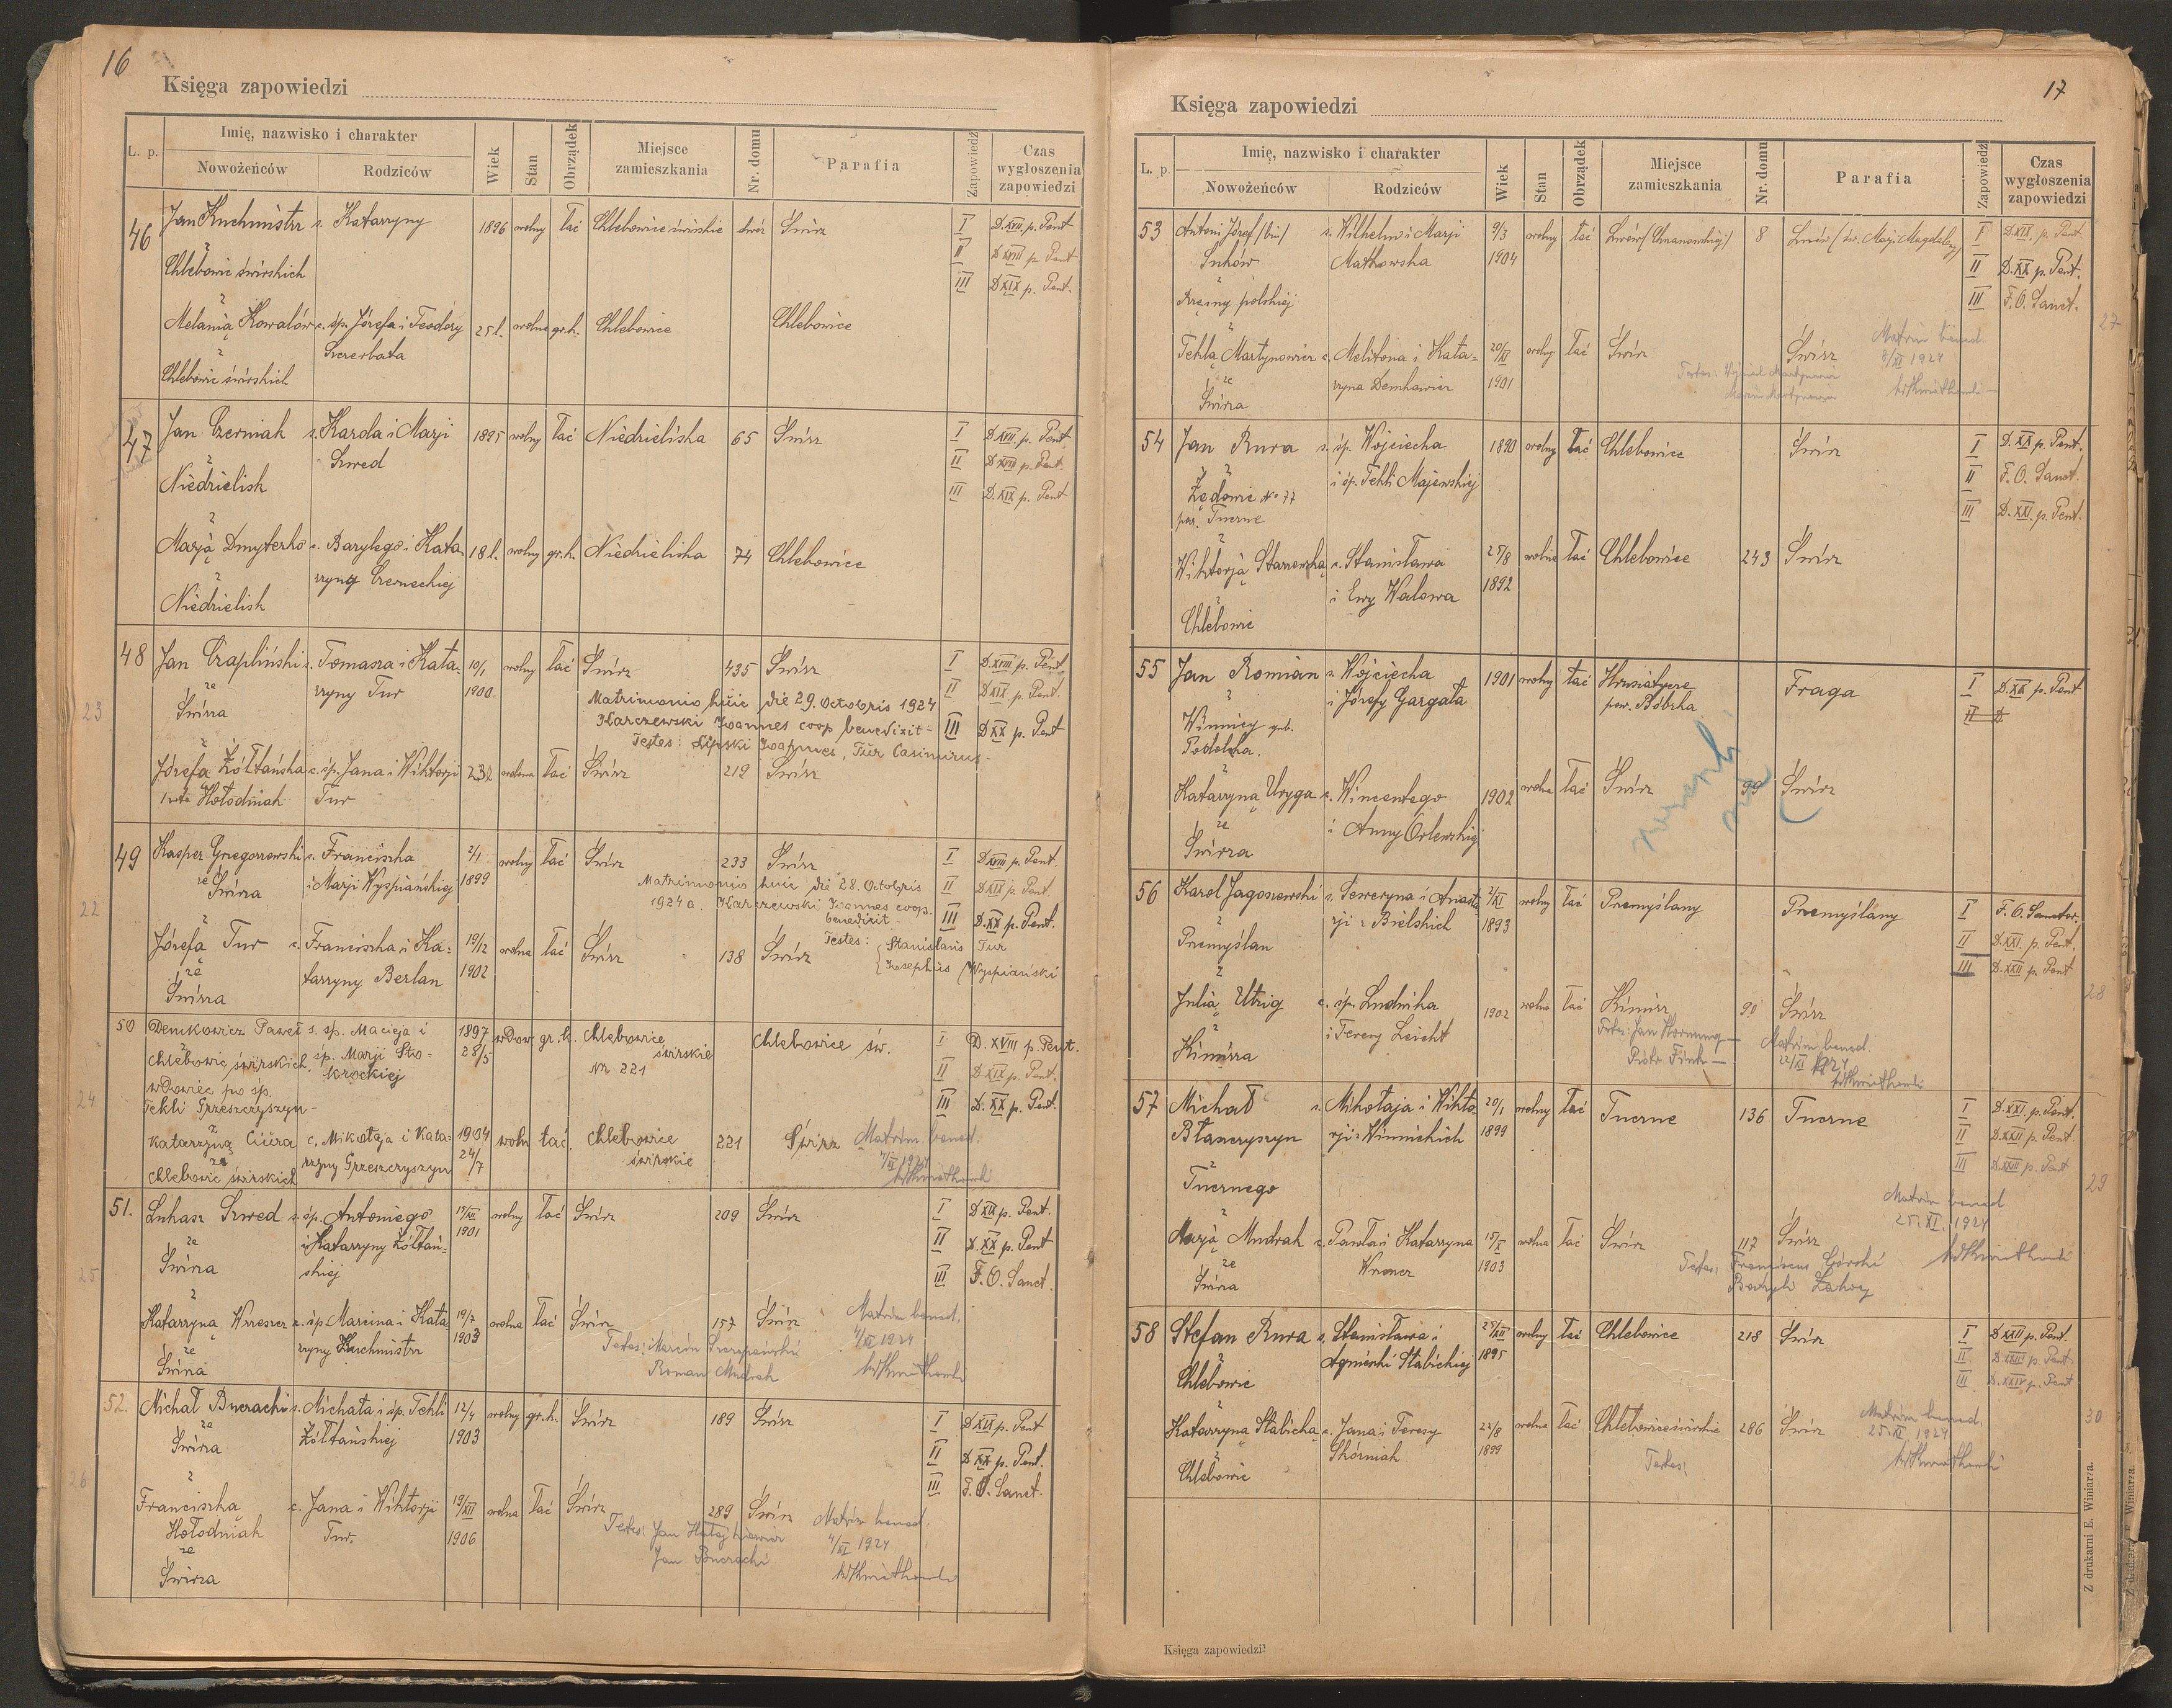 16
Księga zapowiedzi
L. p.
Imię, nazwisko i charakter
Nowożeńców
Rodziców
Wiek
Stan
Obrządek
Miejsce zamieszkania
Nr. domu
Parafia
Zapowiedź
Czas wygłoszenia zapowiedzi
46 Jan Kuchmistrz s. Katarzyny 1896 wolny łać Chlebowice świrskie dwór Świrz I D. XVII p. Pent
z II D XVIII p. Pent
Chlebowic świrskich III D XIX p. Pent.
z
Melanią Kowalów c. śp. Józefa i Teodory 25 l. wolna gr.k. Chlebowice Chlebowice
z Szczerbata
Chlebowic świrskich
47 Jan Czerniak s. Karola i Marji 1895 wolny łać Niedzieliska 65 Świrz I D XVII p. Pent
z Szwed II D XVIII p. Pent.
Niedzielisk III D. XIX p. Pent
z
Marją Dmyterko c. Baryłego i Kata 18 l. wolny gr.k. Niedzieliska 74 Chlebowice
z rzyny Czerneckiej
Niedzielisk
48 Jan Czapliński s. Tomasza i Kata- 10/1 wolny łać Świrz 435 Świrz I D. XVIII p. Pent.
ze rzyny Tur 1900. II D XIX p. Pent.
Świrza Matrimonio huic die 29. Octobris 1924
23 Karczewski Joannes coop benedixit - III D XX p. Pent
z Testes: Lipski Joannes, Tur Casimirus -
Józefa Żółtańska c. śp. Jana i Wiktorji 23 l wolna łać Świrz 219 Świrz
Hołodniak Tur
49 Kasper Grzegorzewski s. Franciszka 2/1 wolny łać Świrz 233 Świrz I D XVIII p. Pent.
ze Świrza i Marji Wyspiańskiej 1899 II D XIX p. Pent
Matrimonio huic die 28. Octobris
1924 a. Karczewski Joannes coop.
benedixit - III D. XX p. Pent.
22 z
Józefą Tur c. Franciszka i Ka- 19/12 wolna łać Świrz 138 Świrz Testes: Stanislaus Tur
ze tarzyny Berlan 1902 Josephus Wyspiański
Świrza
50 Demkowicz Paweł s. śp. Macieja i 1897 wdow gr.k. Chlebowice Chlebowice św. I D. XVIII p. Pent.
z śp. Marji Sko- 28/5 świrskie
Chlebowic świrskich krockiej Nr 221 II D XIX p. Pent.
wdowiec po śp.
24 Tekli Grzeszczyszyn - III D. XX p. Pent.
z
Katarzyną Ciura c. Mikołaja i Kata- 1904 woln łać. Chlebowice 221 Świrz Matrim bened.
ze rzyny Grzeszczyszyn 24/7 świrskie 4/XI 1924
Chlebowic świrskich
51. Łukasz Szwed s. śp. Antoniego wolny łać Świrz 209 Świrz I D XIX p. Pent.
ze i Katarzyny Żółtań- 1901 II D. XX p. Pent
Świrza skiej III F. O. Sanct.
25
z
Katarzyną Wrzeszcz c. śp. Marcina i Kata 19/7 wolna łać Świrz 157 Świrz Matrim bened.
ze rzyny Kuchmistrz 1903 Testes: Marcin 4/XI 1924
Świrza Roman Mudrak
52. Michał Bucracki s. Michała i śp. Tekli 12/4 wolny gr.k. Świrz 189 Świrz I D XIX p. Pent
ze Żółtańskiej 1903 II D XX p. Pent.
Świrza III F. O. Sanct.
26
z
Franciszką c. Jana i Wiktorji 19/XII wolna łać Świrz 289 Świrz Matrim bened.
Hołodniak Tur. 1906 Testes: Jan 4/XI 1924
ze Jan Bucracki
Świrza
17
Księga zapowiedzi
L. p.
Imię, nazwisko i charakter
Nowożeńców
Rodziców
Wiek
Stan
Obrządek
Miejsce zamieszkania
Nr. domu
Parafia
Zapowiedź
Czas wygłoszenia zapowiedzi
53 Antoni Józef s. Wilhelma i Marji 9/3 wolny łać Lwów (Chrzanowskiej) 8 Lwów (św. Marji Magdaleny) I D. XIX p. Pent.
Suków Matkowska 1904 II D. XX p. Pent.
z III F. O. Sanct.
polskiej
27
z
Teklą Martynowicz c. Melitona i Kata- 20/XI wolny łać Świrz Świrz Matrim bened.
ze rzyna Demkowicz 1901 8/XI 1924
Świrza Testes: Martynowicz
Martynowicz
54 Jan Rura s. śp. Wojciecha 1890 wolny łać Chlebowice Świrz I D. XX p. Pent.
z i śp. Tekli Majewskiej II F. O. Sanct.
Zędowic No 77 III D. XXI p. Pent.
par. Tuczne
z
Wiktorją Starzewską c. Stanisława 25/8 wolna łać Chlebowice 243 Świrz
z i Ewy Walowa 1892
Chlebowic
55 Jan Romian s. Wojciecha 1901 wolny łać Hrusiatycze Fraga I D. XX p. Pent
z i Józefy Gargała pow. Bóbrka II D
Winnicy gub.
Podolska.
z
Katarzyną Uryga c. Wincentego 1902 wolna łać Świrz 99 Świrz
ze i Anny Orlewskiej
Świrza
56 Karol Jagoszewski s. Seweryna i Anasta 2/XI wolny łać Przemyślany Przemyślany I F. O. Sanctor.
z zji z Bielskich 1893 II D. XXI. p. Pent.
Przemyślan III D. XXII p. Pent
z
Julią Utzig c. śp. Ludwika 1902 wolna łać Kimirz 90 Świrz 28
z i Teresy Leicht Testes: Jan Hornung - Matrim bened.
Kimirza Piotr Fink - 22/XI 1924
57 Michał s. Mikołaja i Wikto- 20/1 wolny łać Tuczne 136 Tuczne I D. XXI. p. Pent.
Błaszczyszyn rji z Winnickich 1899 II D. XXII p. Pent.
z III D. XXIII p. Pent
Tucznego Matrim bened 29
25. XI. 1924
z
Marją Mudrak c. Pawła i Katarzyna 15/X wolna łać Świrz 117 Świrz
ze Wrzeszcz 1903 Testes: Franciscus Górski
Świrza
58 Stefan Rura s. Stanisława i 25/XII wolny łać Chlebowice 218 Świrz I D XXII p. Pent.
z Agnieszki Stabickiej 1895 II D. XXIII p. Pent.
Chlebowic III D. XXIV p. Pent
z
Katarzyną Stabicką c. Jana i Teresy 22/8 wolna łać Chlebowice świrskie 286 Świrz Matrim bened. 30
z Skórniak 1899 25. XI. 1924
Chlebowic Testes:
Księga zapowiedzi
Z drukarni E. Winiarza.